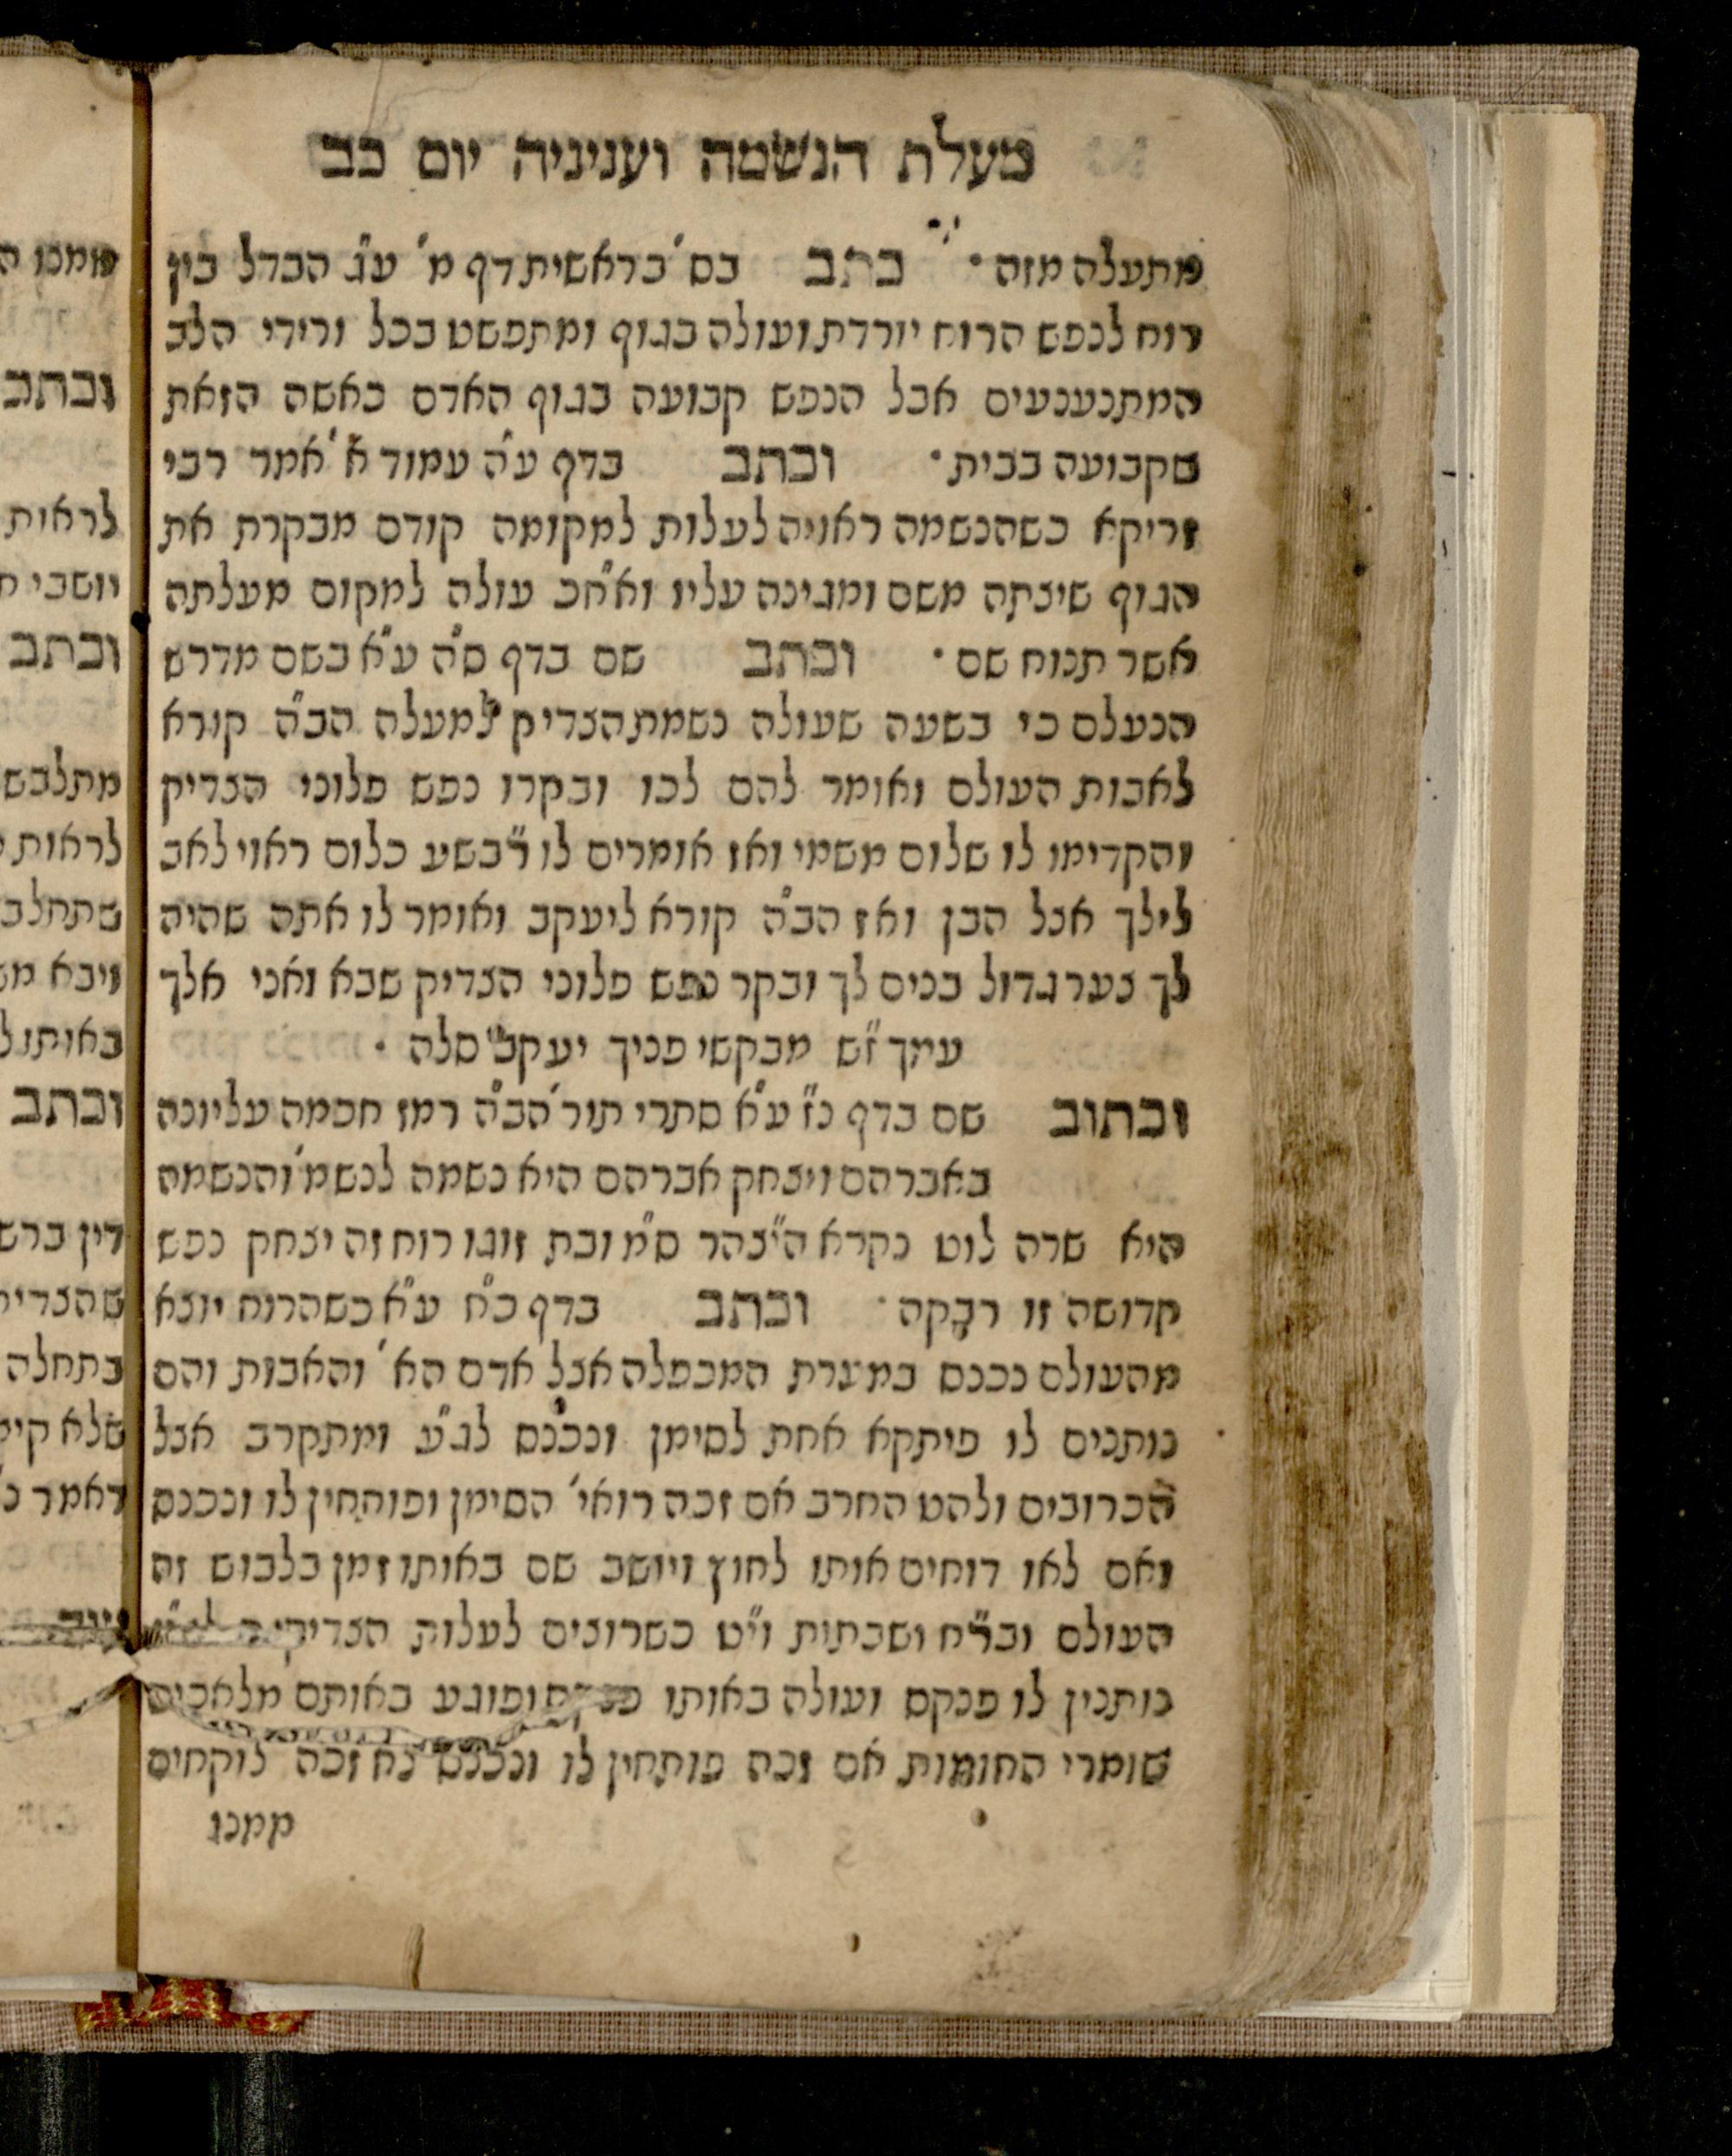 מעלת הנשמה ועניניה יום כב
מתעלה מזה · כתב בס' בראשית דף מ' ע"ג הבדל בין
רוח לנפש הרוח יורדת ועולה בגוף ומתפשט בכל ורידי הלב
המתנענעים אבל הנפש קבועה בגוף האדם כאשה הזאת
שקבועה בבית · וכתב בדף ע"ה עמוד א' אמר רבי
זריקא כשהנשמה ראויה לעלות למקומה קודם מבקרת את
הגוף שיצתה משם ומגינה עליו וא"חכ עולה למקום מעלתה
אשר תנוח שם · וכתב שם בדף ס"ה ע"א בשם מדרש
הנעלם כי בשעה שעולה נשמת הצדיק למעלה הב"ה קורא
לאבות העולם ואומר להם לכו ובקרו נפש פלוני הצדיק
והקדימו לו שלום משמי ואז אומרים לו ר"בשע כלום ראוי לאב
לילך אצל הבן ואז הב"ה קורא ליעקב ואומר לו אתה שהיה
לך צער גדול בנים לך ובקר נפש פלוני הצדיק שבא ואני אלך
עמך ז"ש מבקשי פניך יעקב סלה ·
וכתוב שם בדף כ"ז ע"א סתרי תור' הב"ה רמז חכמה עליונה
באברהם ויצחק אברהם היא נשמה לנשמ' והנשמה
היא שרה לוט נקרא ה"יצהר ס"מ ובת זוגו רוח זה יצחק נפש
קדושה זו רבקה · וכתב בדף כ"ח ע"א כשהרוח יוצא
מהעולם נכנס במערת המכפלה אצל אדם הא' והאבות והם
נותנים לו פיתקא אחת לסימן ונכנס לג"ע ומתקרב אצל
הכרובים ולהט החרב אם זכה רואי' הסימן ופותחין לו ונכנס
ואם לאו דוחים אותו לחוץ ויושב שם באותו זמן בלבוש זה
העולם ובר"ח ושבתות וי"ט כשרוצים לעלות
נותנין לו פנקס ועולה באותו פנקס ופוגע באותם מלאכים
שומרי החומות אם זכה פותחין לו ונכנס לא זכה לוקחים
ממנו
וממנו
וכתב
לראית
יושבי
וכתב
מתלבש
לראות
שתחלב
ויבא
באותו
וכתב
דין
בתחלה
שלא
דאמר